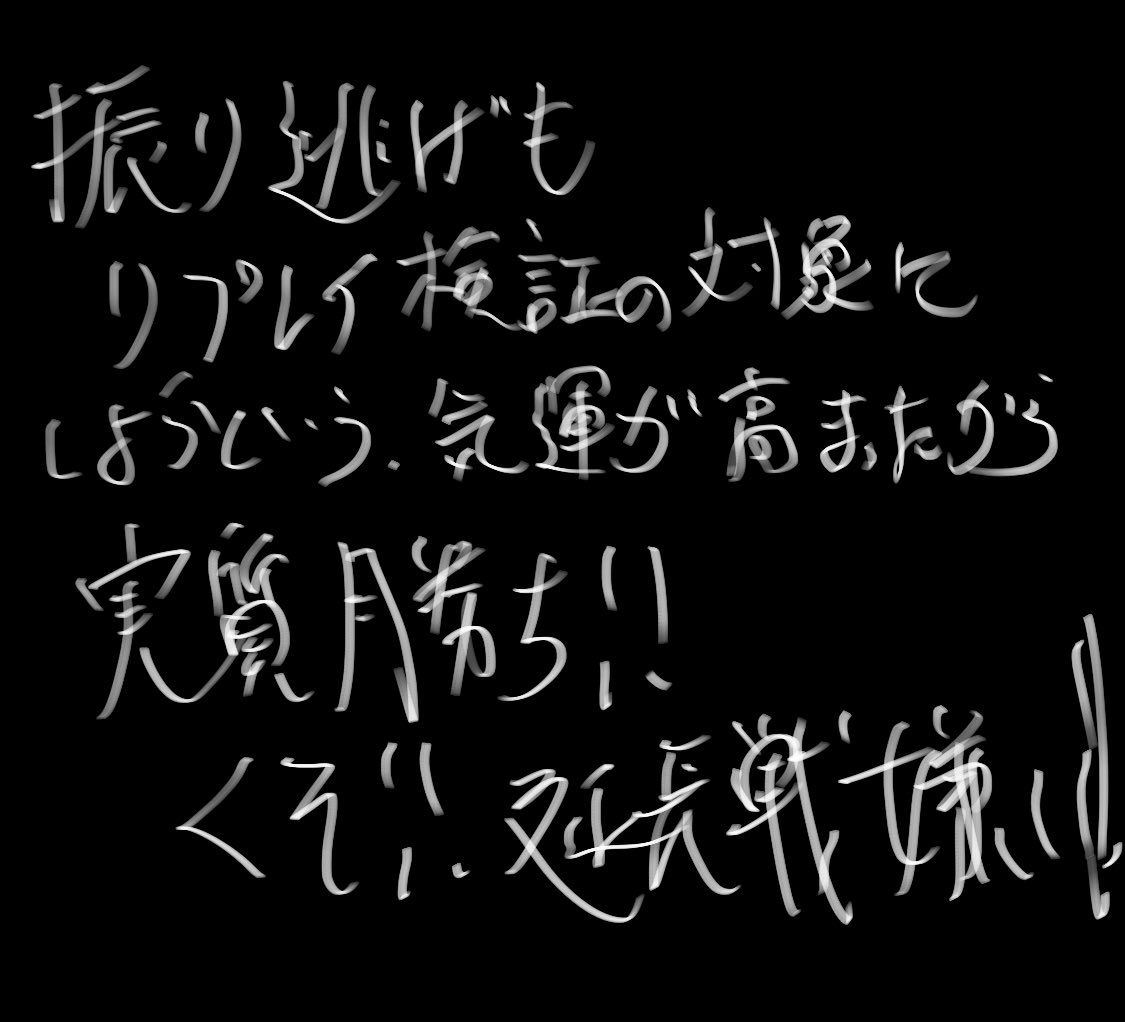 振り逃げも
リプレイ検証の対象に
しようという.気運が高またから
実質勝ち!!
くそ!!延長戦嫌い!!